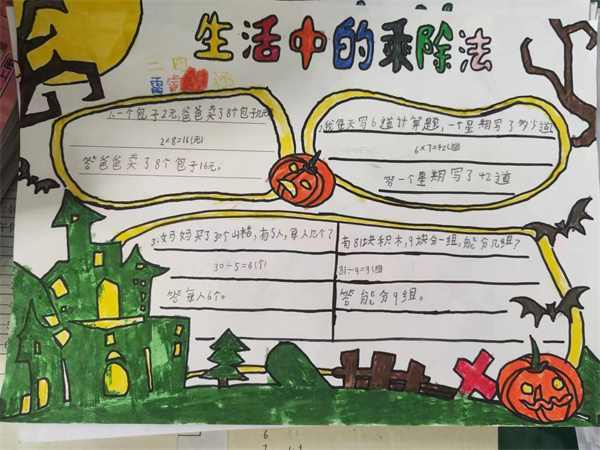 生活中的乘除法
二四
1.一个包子2元,爸爸卖了8个包子几元
2×8=16(元)
答爸爸卖了8个包子16元。
2.我每天写6道计算题,一个星期写了多少道
6×7=42(道)
答一个星期写了42道
3.妈妈买了30个山楂,有5人,每人几个?
30÷5=6(个)
答每人6个。
有81块积木,9块分一组,能分几组?
81÷9=9(组
答能分9组。